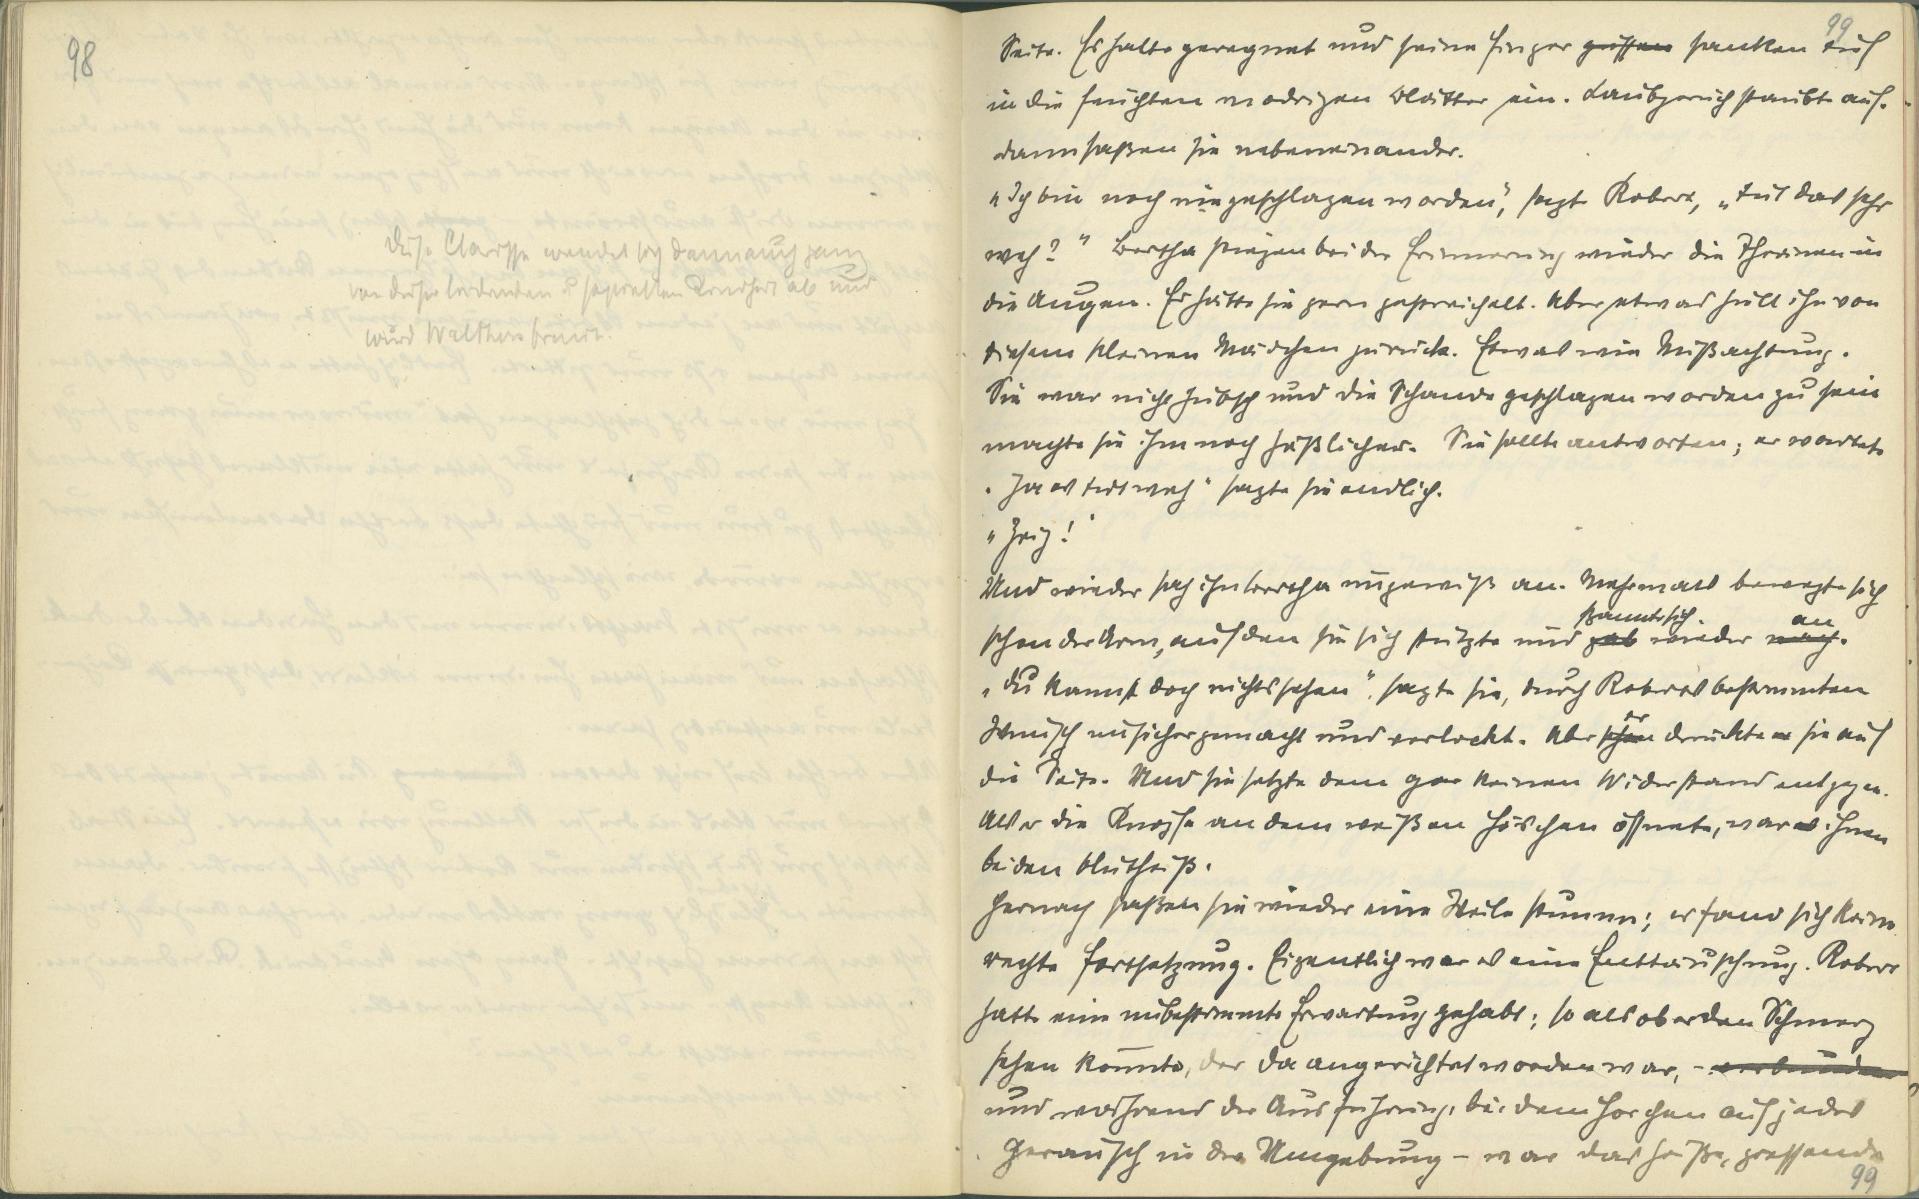 98
Diese Clarisse wendet sich dann auch ganz
von dieser leidenden u Kindheit ab und
wird Walthers Freund.
99
Seite. Es hatte geregnet und seine Finger sanken tief
in die feuchten modrigen Blätter ein. Laubgeruch staubte auf.
Dann saßen sie nebeneinander.
„Ich bin noch nie geschlagen worden", sagte Robert, „tut das sehr
weh?" Bertha stiegen bei der Erinnerung wieder die Thränen in
die Augen. Er hätte sie gern gestreichelt. Aber etwas hielt ihn von
diesem kleinen Mädchen zurück. Etwas wie Mißachtung.
Sie war nicht hübsch und die Schande geschlagen worden zu sein
machte sie ihm noch häßlicher. Sie sollte antworten; er wartete
„Ja es tut weh" sagte sie endlich.
„Zeig!"
Und wieder sah ihn Bertha ungewiß an. Mehrmals bewegte sich
spannte sich an
schon der Arm, auf den sie sich stützte und gab wieder nach.
„Du kannst doch nichts sehen", sagte sie, durch Roberts bestimmten
Wunsch unsicher gemacht und verlockt. Aber er drückte sie auf
die Seite. Und sie setzte dem gar keinen Widerstand entgegen.
Als er die Knöpfe an dem weißen Höschen öffnete, war es ihnen
beiden blutheiß.
Hernach saßen sie wieder eine Weile stumm; es fand sich keine
rechte Fortsetzung. Eigentlich war es eine Enttäuschung. Robert
hatte eine unbestimmte Erwartung gehabt; so als ob er den Schmerz
sehen könnte, der da angerichtet worden war, –
und während der Ausführung, bei dem Horchen auf jedes
Geräusch in der Umgebung – war das heiße, pressende
99